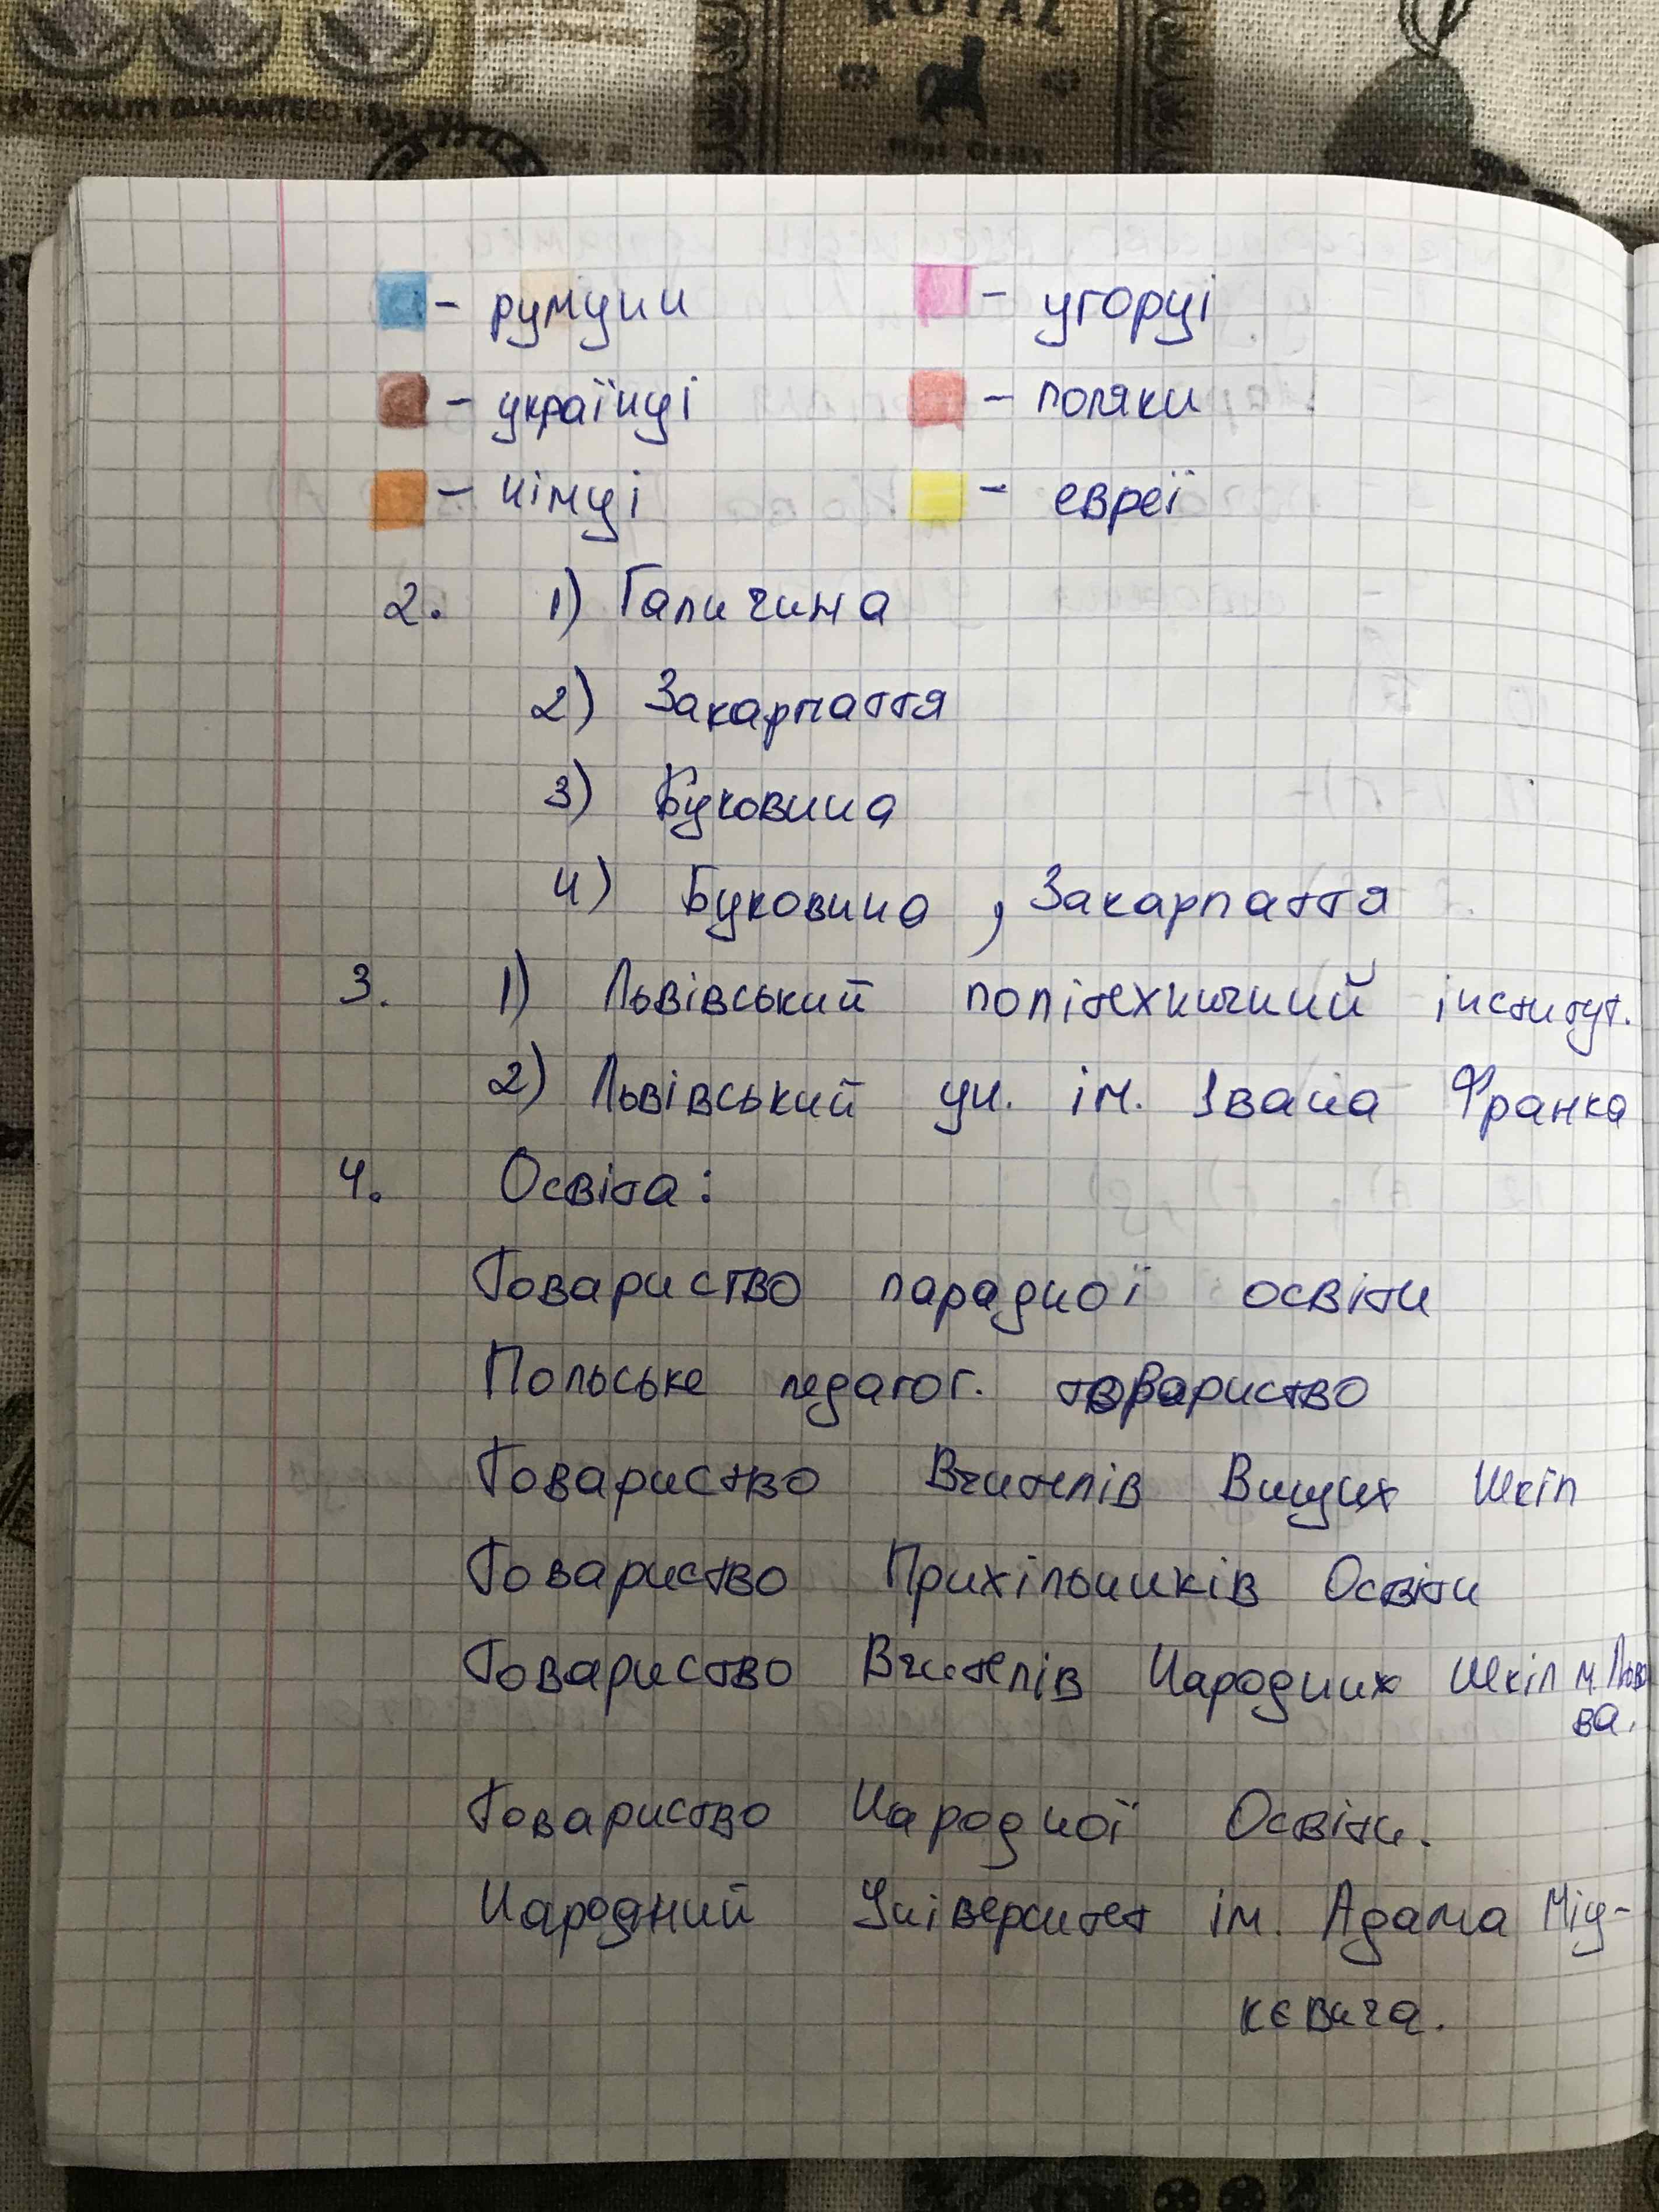 ROYAL
QUALITY GUARANTEED
- румуни - угорці
- українці - поляки
- німці - євреї
2. 1) Галичина
2) Закарпаття
3) Буковина
4) Буковина, Закарпаття
3. 1) Львівський політехничний інститут.
2) Львівський ун. ім. Івана Франка
4. Освіта:
Товариство народної освіти
Польське педагог. товариство
Товариство Вчителів Вищих Шкіл
Товариство Прихільників Освіти
Товариство Вчителів Народних Шкіл м. Льво
ва.
Товариство Народної Освіти.
Народний Університет ім. Адама Міц-
кєвича.